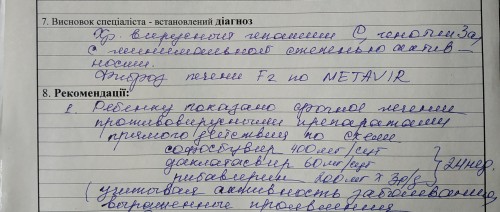 7. Висновок спеціаліста - встановлений діагноз
Хр. вирусный гепатит С, генотип 3а,
с минимальной степенью актив-
ности.
Фиброз печени F2 по METAVIR
8. Рекомендації:
1. Ребенку показано срочное лечение
противовирусными препаратами
прямого действия по схеме
софосбувир 400мг/сут
даклатасвир 60мг/сут } 24нед.
рибавирин 200мг х 3р/д
(учитывая активность заболевания,
выраженные проявления